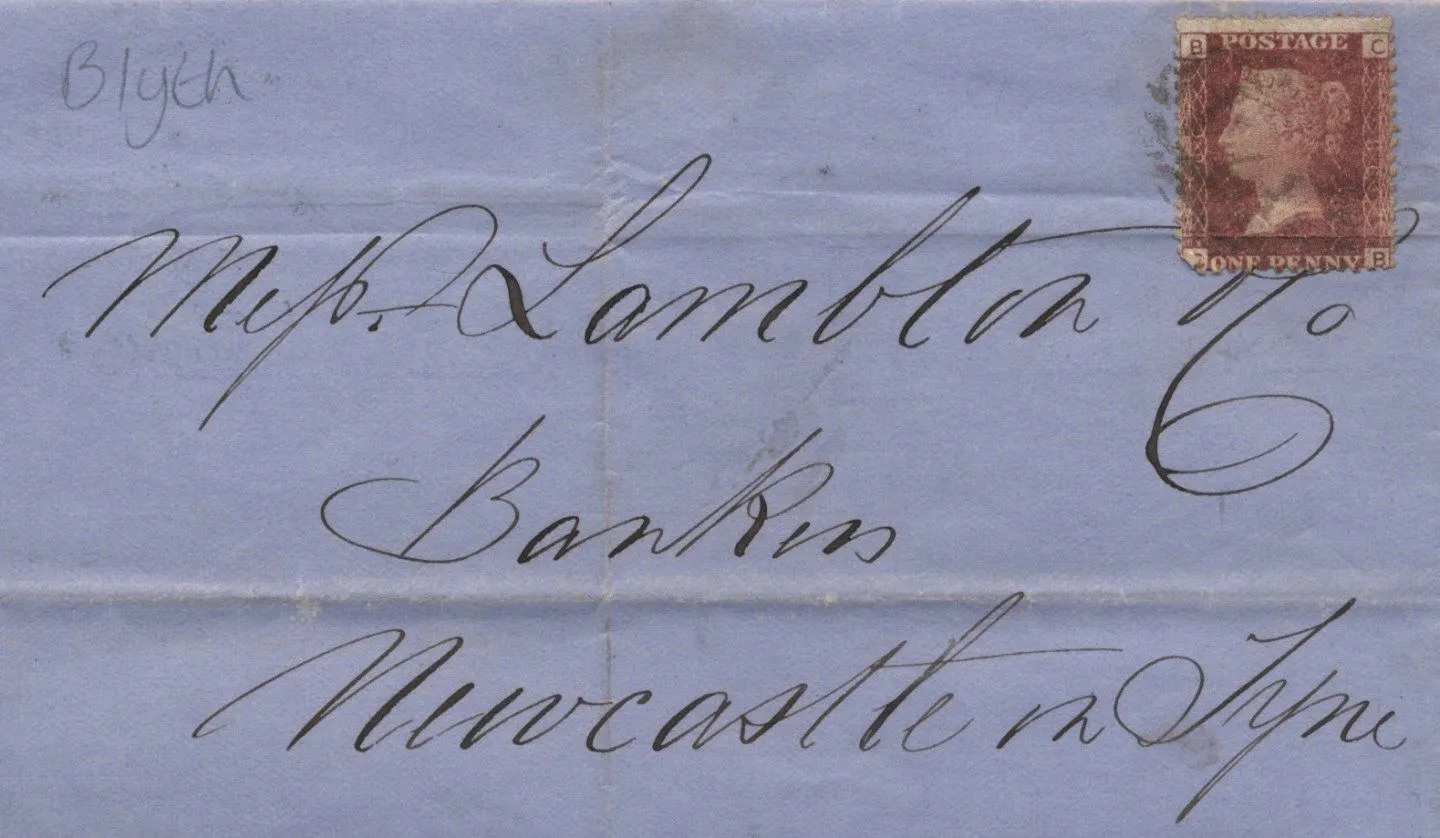 Blyth
B POSTAGE C
ONE PENNY B
Messrs. Lambton & Co
Bankers
Newcastle on Tyne